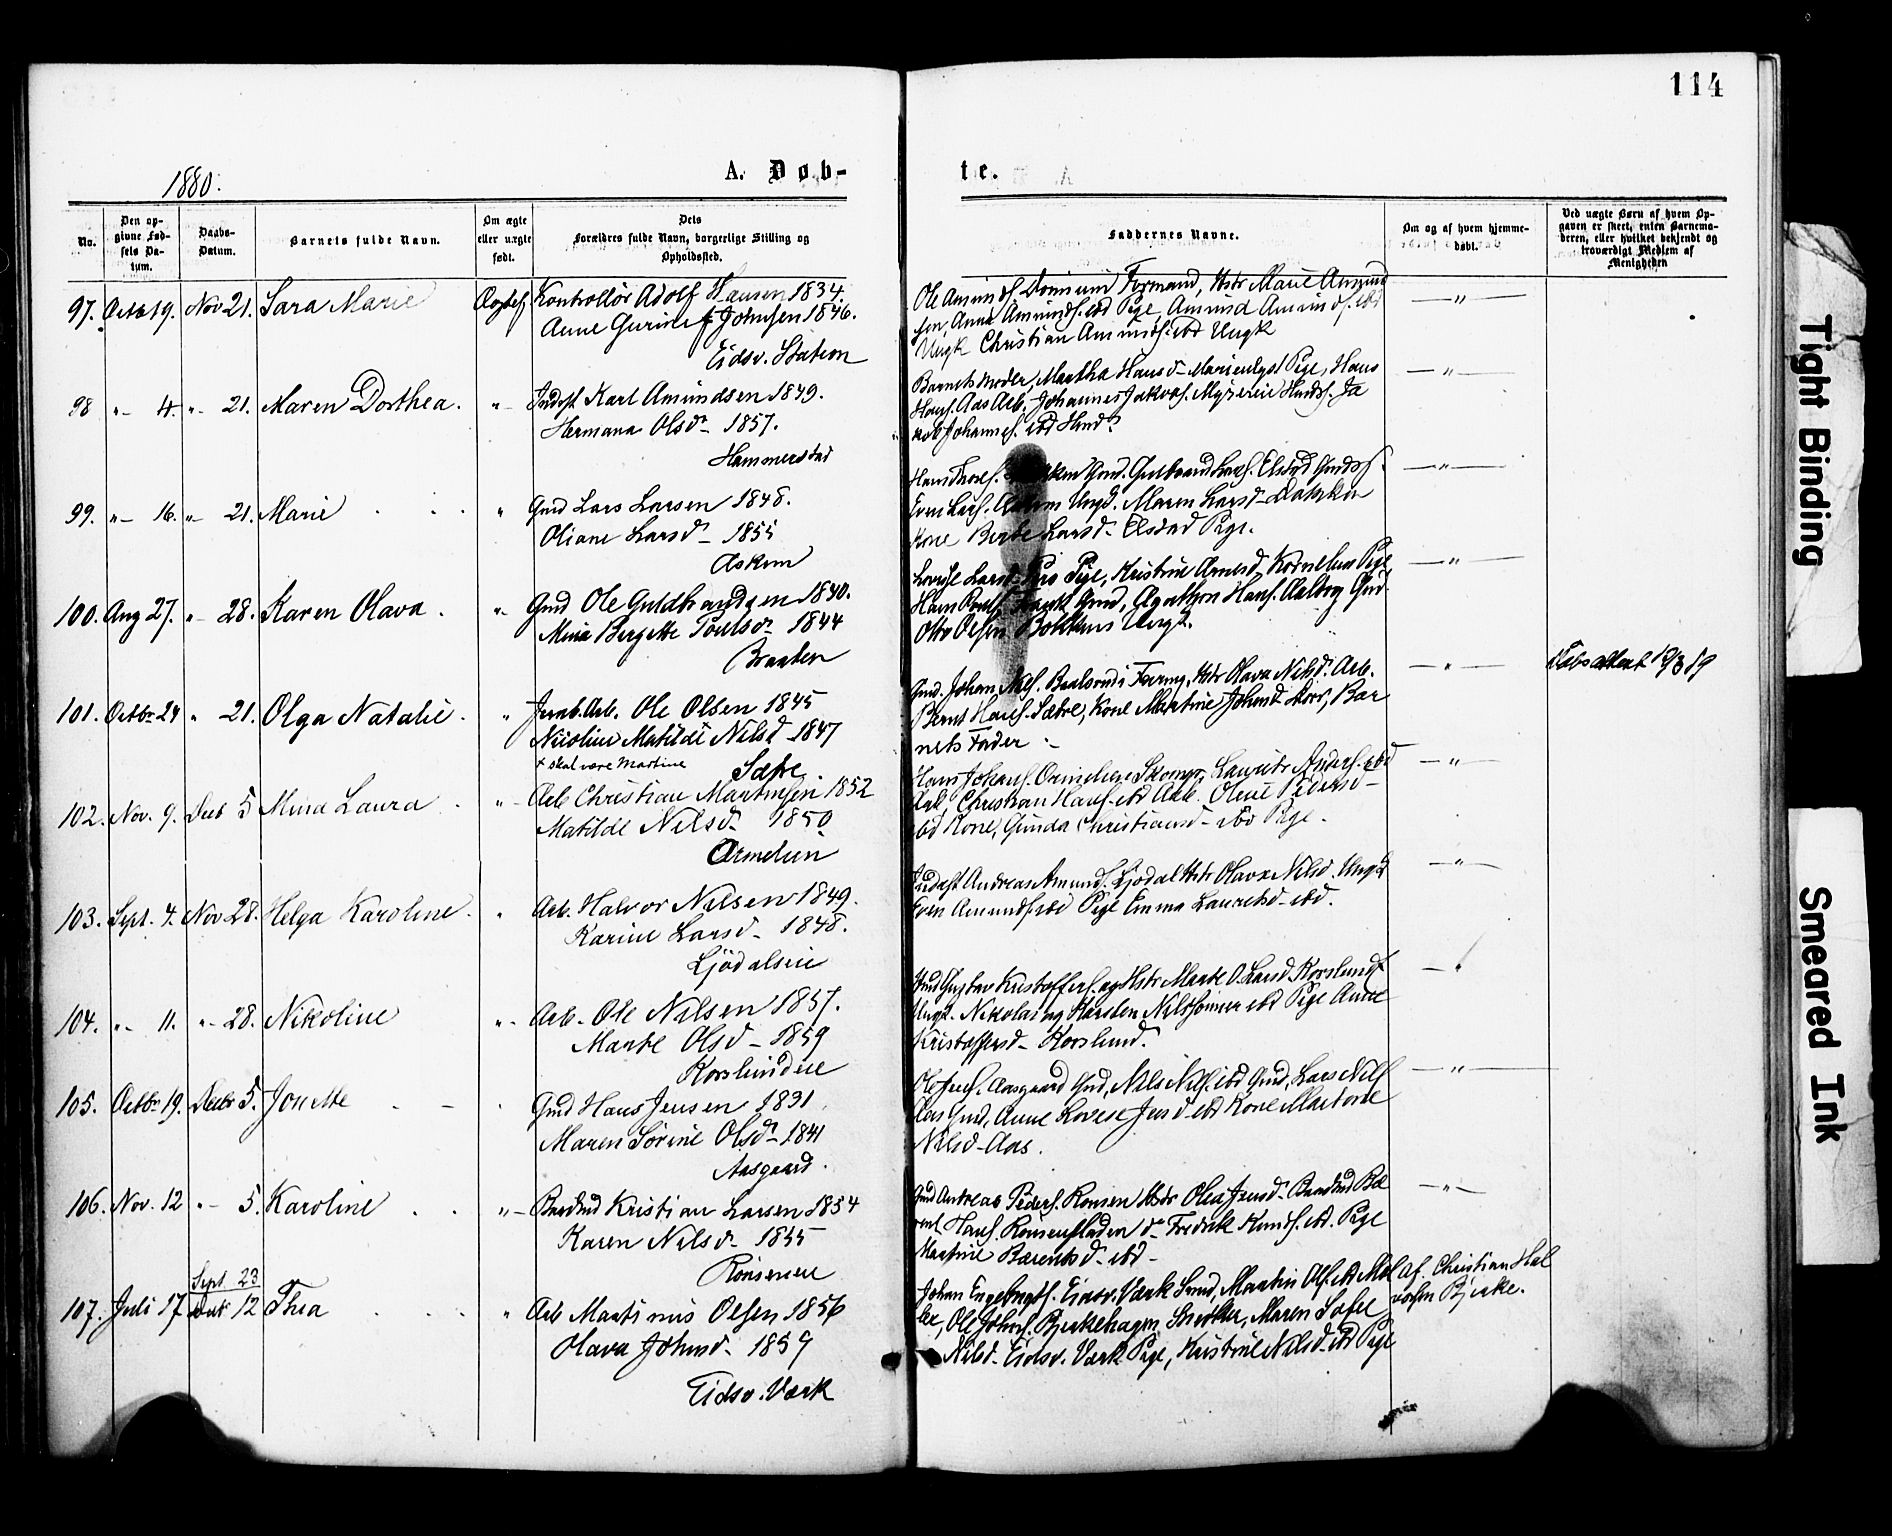 114
1880.
A. Døb-
te.
No.
Den op-
givne Fød-
sels Da-
tum.
Daabs-
Datum.
Barnets fulde Navn.
Om ægte
eller uægte
født.
Dets
Forældres fulde Navn, borgerlige Stilling og
Opholdssted.
Faddernes Navne.
Om og af hvem hjemme-
døbt.
Ved uægte Børn af hvem Op-
gaven er skeet, enten Barnemo-
deren, eller hvilket bekjendt og
troværdigt Medlem af
Menigheden
97. Octb 19. Nov 21. Sara Marie Kontrollör Adolf Hansen 1834.
Anne Gurine Johnsen 1846.
Eidsv. Station
Ole Amunds. Formand, Hstr Marie Amund
sen, Anna Amunds. ibd Pige, Amund Amunds. ibd
Ungk Christian Amunds. ibd Ungk
—"—
98 "— 4. "— 21. Maren Dorthea. "— Indst Karl Amundsen 1849.
Hermana Olsdr 1857.
Hammerstad
Barnets Moder, Martha Hansd— Marienlyst Pige, Hans
Hans. Aas Arb. Johannes Jakobs. Myrereie Husds. Ja
kob Johannes. ibd Husds
—"—
99. "— 16. "— 21. Marie " Gmd Lars Larsen 1848.
Oliane Larsd— 1855
Askum
Gmd. Gulbrand Lars. Elstad
Even Lars. Askum Ungk. Maren Larsd—
Kone Berte Larsd— Elstad Pige.
—"—
100. Aug 27. "— 28. Karen Olava. "— Gmd Ole Guldbrandsen 1840.
Mina Bergette Poulsdr 1844
Braaten
Lovise Larsd— Pige, Kristine Pige
Hans Gmd, Agathon Hans. Aalborg Gmd.
Otto Olsen Ungk.
—"—
101. Octbr 24 " 21. Olga Natalie. " Jernb. Arb. Ole Olsen 1845
Nicoline Matilde Nilsd 1847
+ skal være Martine
Sætre.
Gmd. Johan Nils. Hstr Olava Nilsd. Arb.
Bernt Hans. Sætre, Kone Martine Johnsd Bar
nets Fader
—"—
Døbsattest
102. Nov. 9. Decb 5 Mina Laura. "— Arb Christian Martinsen 1852
Matilde Nilsd. 1850
Ormelien
Hans Johans. Ormelien Laurits Anders. ibd
Christian Hans. ibd Arb. Oline Pedersd—
ibd Kone, Gunda Christiansd— ibd Pige.
—"—
103. Sept. 4. Nov 28. Helga Karoline. " Arb. Halvor Nilsen 1849.
Karine Larsd— 1848.
Ljödalseie
Indst Andreas Amunds. Ljödal Hstr Olava Nilsd. Ungk
Even Amunds. ibd Pige Emma Lauritsd— ibd.
—"—
104. "— 11. "— 28. Nikoline "— Arb. Ole Nilsen 1857.
Marte Olsd— 1859
Korslundeie
Gmd Gustav Kristoffers. og Hstr Marte O. Larsd Korslund
Ungk. Nikolai og Karsten Nilssönner ibd Pige Anne
Kristoffersd— Korslund.
—"
105. Octbr 19. Decbr 5. Jonette Gmd Hans Jensen 1831
Maren Sörine Olsdr 1841
Aasgaard.
Ole Jens. Aasgaard Gmd, Nils Nils. ibd Gmd, Lars Nils
Aas Gmd, Anne Lovise Jensd— ibd Kone Martine
Nilsd— Aas.
—"—
106. Nov. 12 "— 5. Karoline "— Kristian Larsen 1854
Karen Nilsd— 1855
Rönseneie
Gmd Andreas Peders. Ronsen Hstr Olea Jensd— Bæ
rent Hans. Fredrik Knuds. ibd. Pige
Martine Bærentsd— ibd—
—"—
107. Juli 17 Sept 23
Decb 12 Thea " Arb Martinius Olsen 1856
Olava Johnsd— 1859
Eidsv. Værk
Johan Engebrets. Eidsv. Værk Smed, Martin Ols. ibd Møl
ler, Ole Johns. Bjerkehagen Snedker, Maren Sofie
Nilsd— Eidsv. Værk Pige, Kristine Nilsd— ibd Pige
af Christian Hal
vorsen Bjerke.
Tight Binding
Smeared Ink